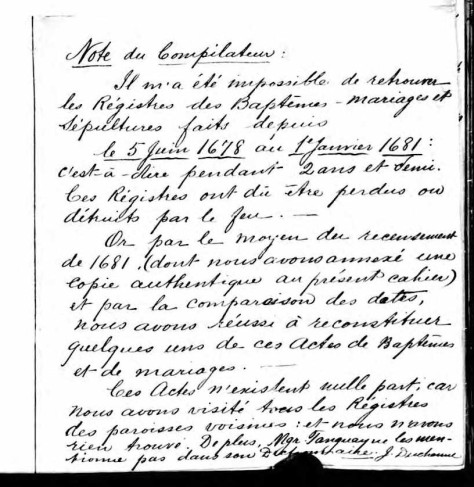 Note du Compilateur :
Il m'a été impossible de retrouver
les Régistres des Baptêmes - mariages et
Sépultures faits depuis
le 5 Juin 1678 au 1er Janvier 1681 :
c'est-à-dire pendant 2 ans et demi.
Ces Régistres ont dû être perdus ou
détruits par le feu. —
Or par le moyen du recensement
de 1681, (dont nous avons annexé une
copie authentique au présent cahier)
et par la comparaison des dates,
nous avons réussi à reconstituer
quelques uns de ces Actes de Baptêmes
et de mariages. —
Ces Actes n'existent nulle part, car
nous avons visité tous les Régistres
des paroisses voisines : et nous n'avons
rien trouvé. De plus, Mgr Tanguay ne les men-
tionne pas dans son Dictionnaire. J.